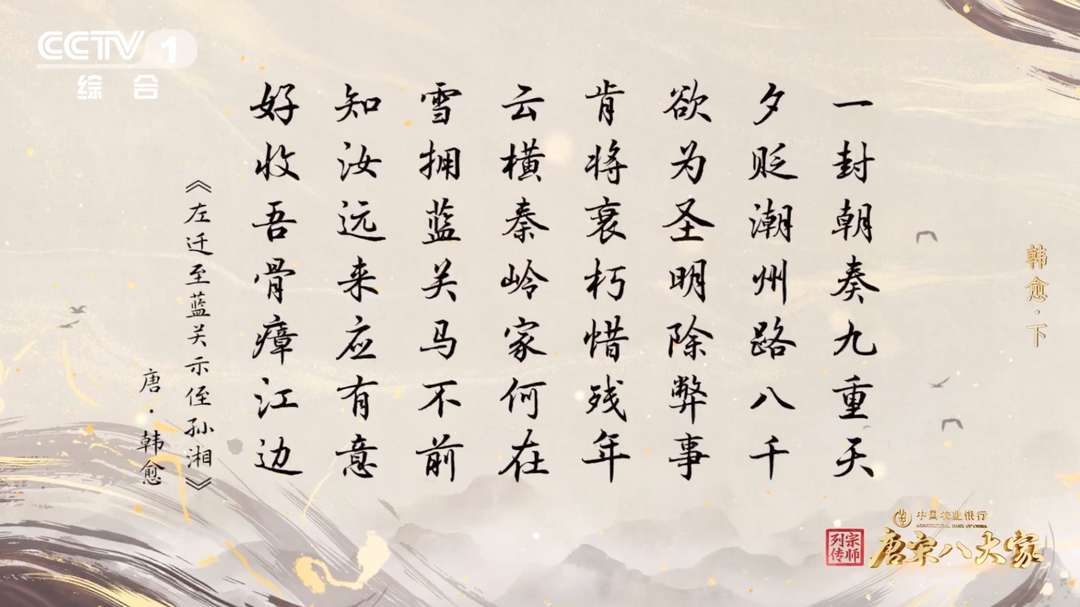 CCTV 1
综合
一封朝奏九重天
夕贬潮州路八千
欲为圣明除弊事
肯将衰朽惜残年
云横秦岭家何在
雪拥蓝关马不前
知汝远来应有意
好收吾骨瘴江边
《左迁至蓝关示侄孙湘》
唐·韩愈
韩愈·下
中国农业银行
AGRICULTURAL BANK OF CHINA
宗师列传
唐宋八大家